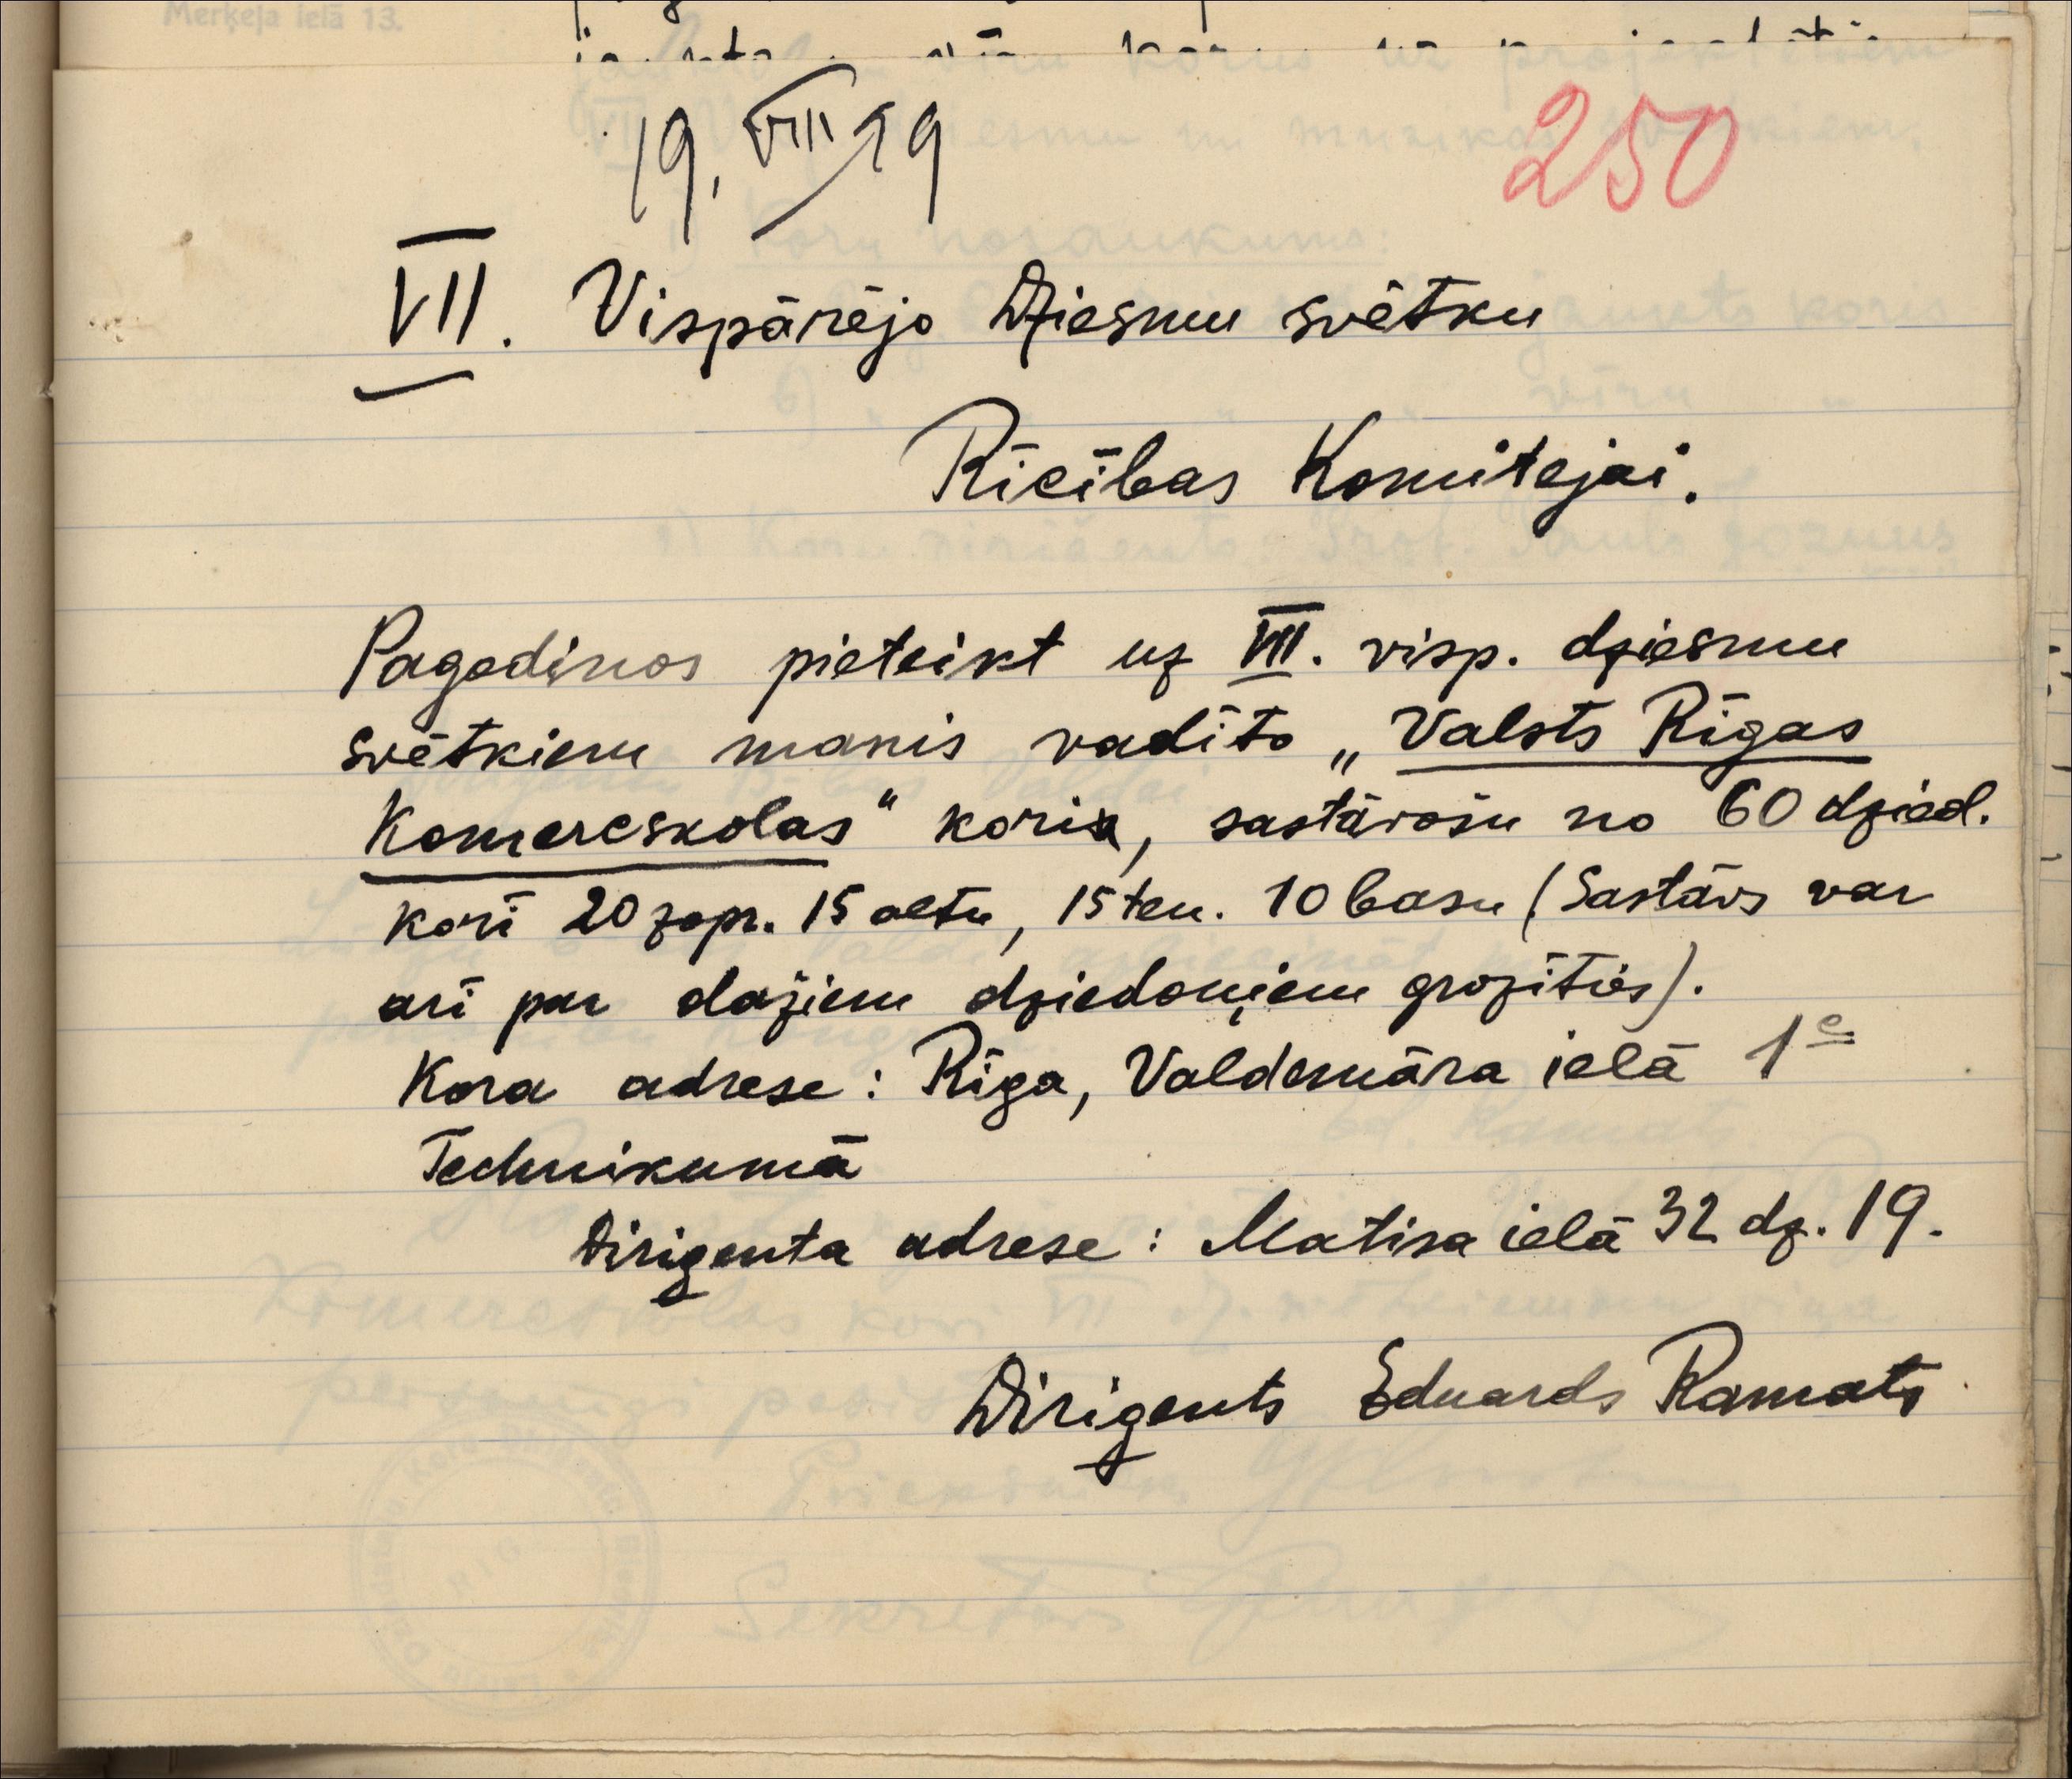 Merķeļa ielā 13.
19. VIII 29
250
VII. Vispārējo Dziesmu svētku
Rīcības Komitejai.
Pagodinos pieteikt uz VII. visp. dziesmu
svētkiem manis vadīto „Valsts Rīgas
Komercskolas" kori, sastāvošu no 60 dzied.
kori 20 sopr. 15 altu, 15 ten. 10 basu (Sastāvs var
arī par dažiem dziedoņiem grozīties).
Kora adrese: Rīga, Valdemāra ielā 1 c
Technikumā
Dirigenta adrese: Matisa ielā 32 dz. 19.
Dirigents Eduards Ramats